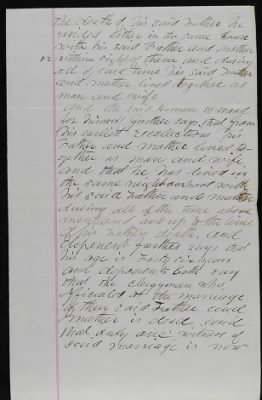 the death of his said mother he
resided either in the same house
with his said Father and mother
or within sight of them and during
all of said time his said mother
and mother lived together as
man and wife
And the said Homer
for himself further says that from
his earliest recollections his
Father and mother lived to-
gether as man and wife
and that he has lived in
the same neighborhood with
his said Father and mother
during all of the time above
mentioned and up to the time
of his mothers death and
deponent further says that
his age is Forty six years
and deponents both say
that the clergyman who
officiated at the marriage
of their said Father and
mother is dead and
that only one witness of
said marriage is now